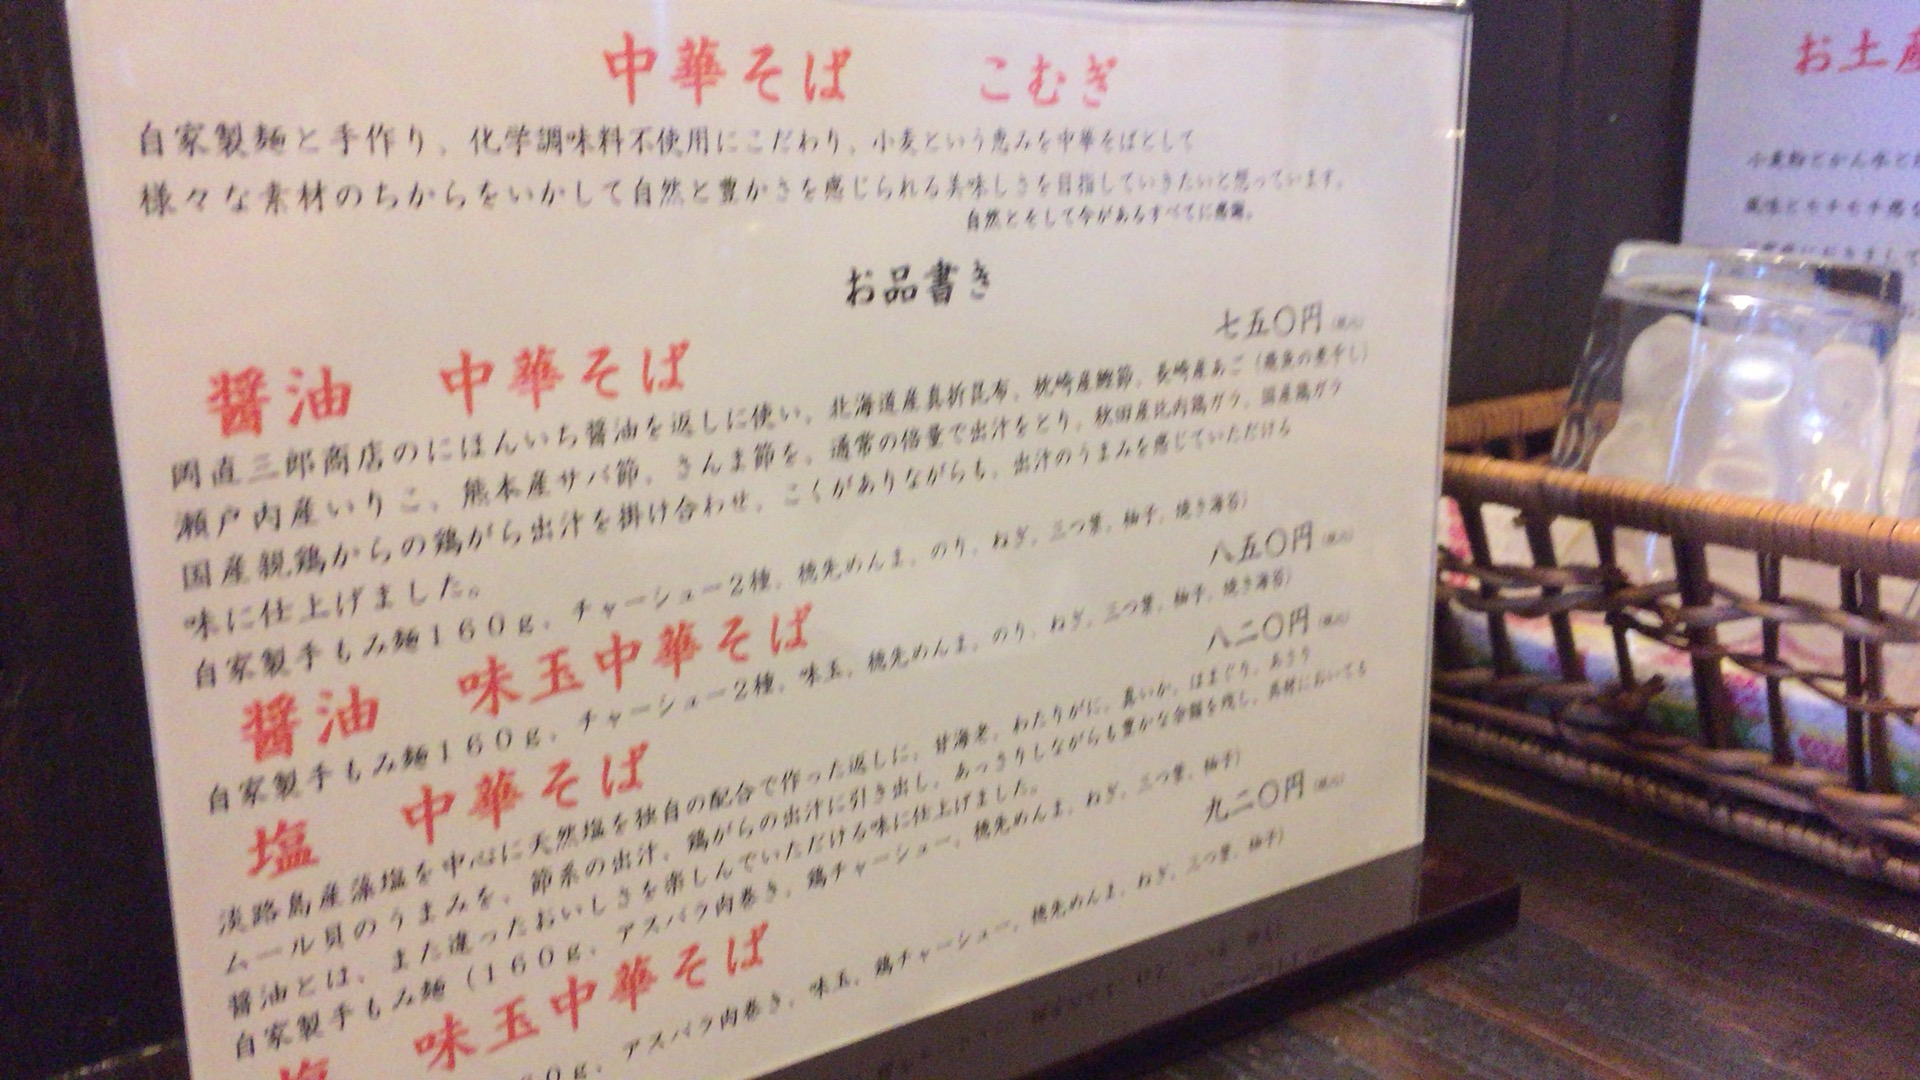 中華そば　こむぎ
自家製麺と手作り、化学調味料不使用にこだわり、小麦という恵みを中華そばとして
様々な素材のちからをいかして自然と豊かさを感じられる美味しさを目指していきたいと想っています。
自然とそして今があるすべてに感謝。
お品書き
醤油　中華そば　七五〇円
岡直三郎商店のにほんいち醤油を返しに使い、北海道産真折昆布、枕崎産鰹節、長崎産あご（飛魚の煮干し）
瀬戸内産いりこ、熊本産サバ節、さんま節を、通常の倍量で出汁をとり、秋田産比内鶏ガラ、国産鶏ガラ
国産親鶏からの鶏がら出汁を掛け合わせ、こくがありながらも、出汁のうまみを感じていただける
味に仕上げました。
自家製手もみ麺１６０ｇ、チャーシュー２種、穂先めんま、のり、ねぎ、三つ葉、柚子、焼き海苔）
醤油　味玉中華そば　八五〇円
自家製手もみ麺１６０ｇ、チャーシュー２種、味玉、穂先めんま、のり、ねぎ、三つ葉、柚子、焼き海苔）
塩　中華そば　八二〇円
淡路島産藻塩を中心に天然塩を独自の配合で作った返しに、甘海老、わたりがに、真いか、はまぐり、あさり
ムール貝のうまみを、節系の出汁、鶏がらの出汁に引き出し、あっさりしながらも豊かな余韻を残し、具材においても
醤油とは、また違ったおいしさを楽しんでいただける味に仕上げました。
自家製手もみ麺（１６０ｇ、アスパラ肉巻き、鶏チャーシュー、穂先めんま、ねぎ、三つ葉、柚子）
塩　味玉中華そば　九二〇円
６０ｇ、アスパラ肉巻き、味玉、鶏チャーシュー、穂先めんま、ねぎ、三つ葉、柚子）
お土産
小麦粉とかん水と
風味とモチモチ感